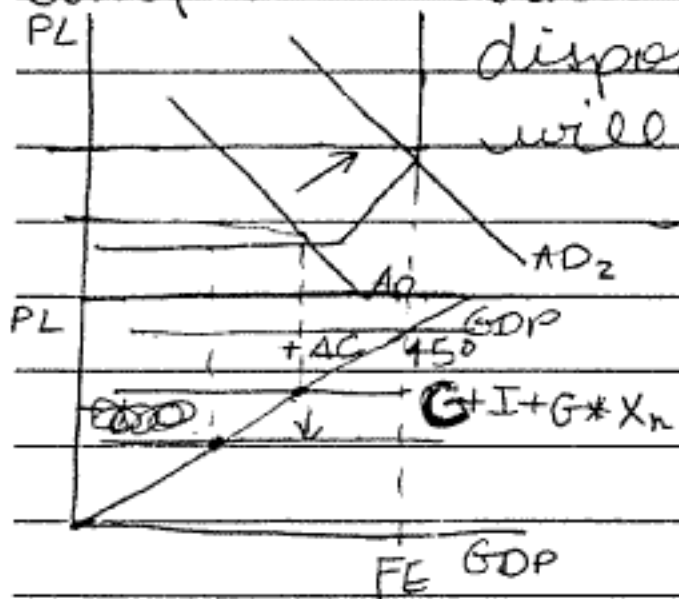 PL
dispo
will
AD₂
AD
PL
GDP
+ΔG 45°
G+I+G*Xn
FE GDP